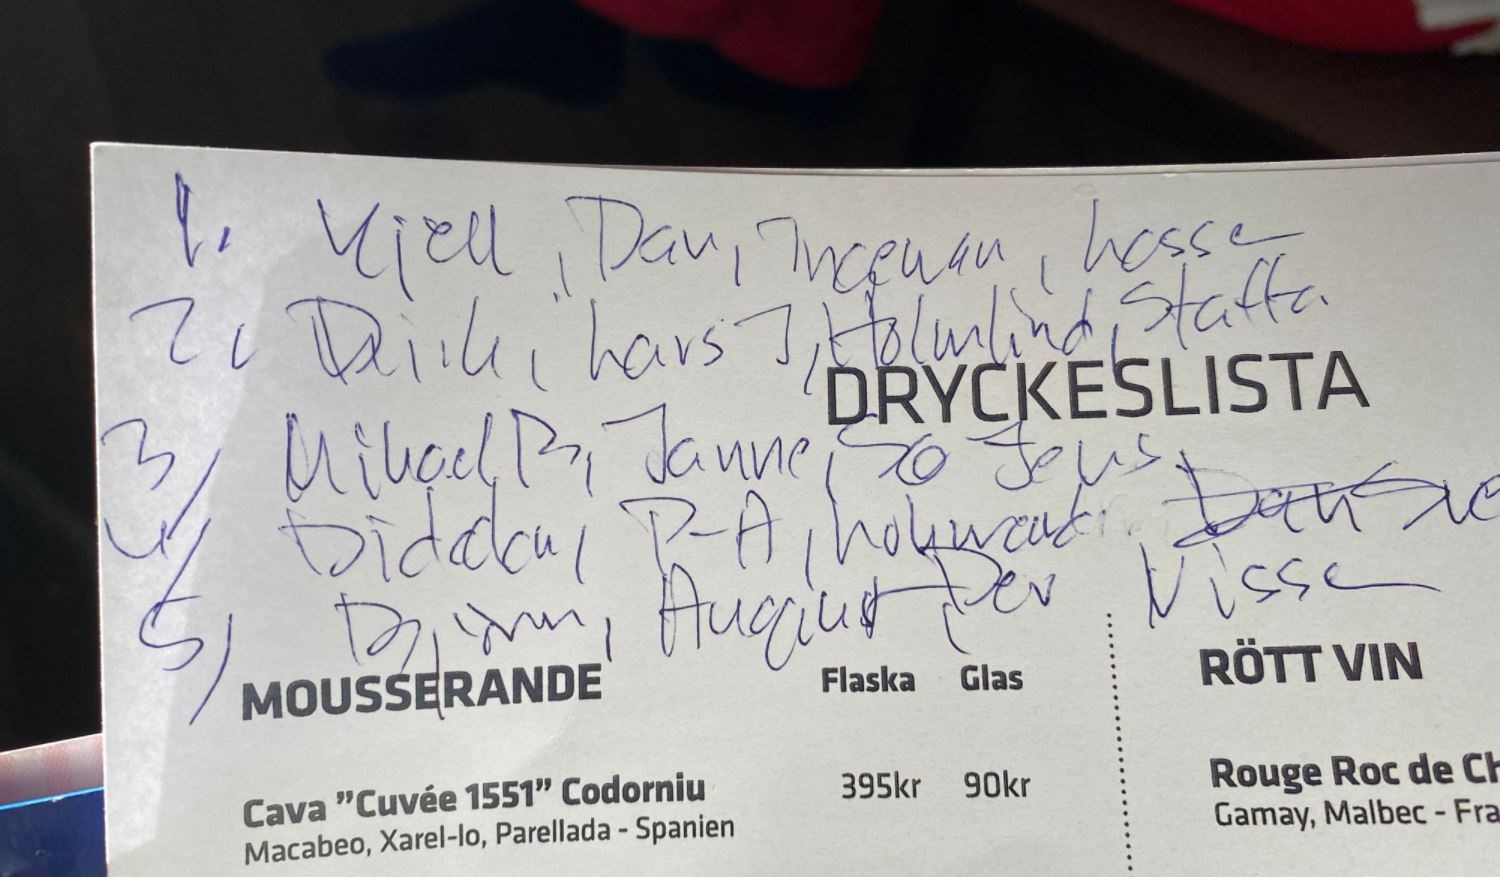 1. Kjell, Dan, Ingemar, Lasse
2, Dirik, Lars J, Holmlind, Staffa
DRYCKESLISTA
3, Mikael B, Janne, So Jens
4, Diddan, P-A,
5, Björn, August Per Nisse
MOUSSERANDE Flaska Glas
RÖTT VIN
Cava ”Cuvée 1551” Codorniu 395kr 90kr
Macabeo, Xarel-lo, Parellada - Spanien
Rouge Roc de Ch
Gamay, Malbec - Fra